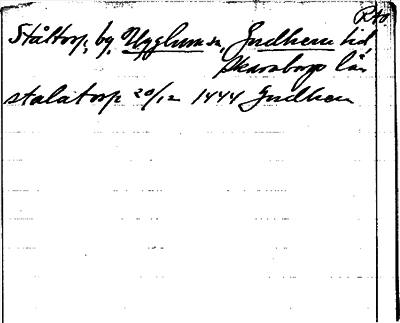 RAp
Ståltorp, by, Ugglum sn, Gudhem hd,
Skaraborgs län
stalatorp 20/12 1444 Gudhem